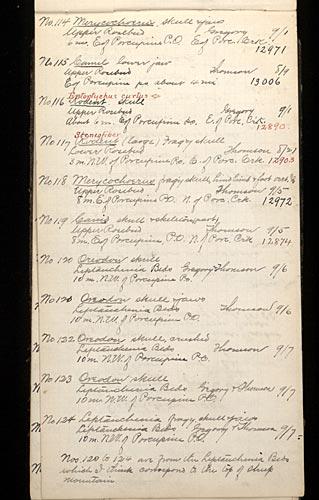 No. 114 Merycochoerus skull & jaws
Upper Rosebud Gregory 9/1
6 m. E of Porcupine P.O. E of Porc. Crk.
12971
No. 115 Camel lower jaw
Upper Rosebud Thomson 8/9
E of Porcupine P.O. about 4 mi 13006
Entoptychus curtus
No 116 Rodent skull
Upper Rosebud Gregory 9/1
About 6 m. E of Porcupine P.O. E of Por. Crk
12890.
Steneofiber
No 117 Rodent (large) Frag skull
Lower Rosebud Thomson 8/21
3 m. N.W. of Porcupine P.O. E. of Porc. Crk 12903
No 118 Merycochoerus frag skull, hind limb & foot
Upper Rosebud Thomson 9/5
8 m. E of Porcupine P.O. N. of Porc. Crk. 12972
No. 119 Canid skull & skeleton parts
Upper Rosebud Thomson 9/5
8 m. E of Porcupine, P.O. N. of Porc. Crk 12874
No. 120 Oreodon skull
Leptauchenia Beds Gregory & Thomson 9/6
10 m. N.W. of Porcupine P.O.
Oreodon skull & jaws
Leptauchenia Beds Thomson 9/6
10 m. N.W. of Porcupine P.O.
No. 122 Oreodon skull, crushed
Leptauchenia Beds Thomson 9/7
10 m. N.W. of Porcupine P.O.
No. 123 Oreodon skull
Leptauchenia Beds Gregory & Thomson 9/7
10 m. N.W. of Porcupine P.O.
No. 124 Leptauchenia frag skull & jaws
Leptauchenia Beds Gregory & Thomson 9/7
10 m. N.W. of Porcupine P.O.
Nos. 120 to 124 are from the Leptauchenia Beds
which I think correspond to the top of Sheep
Mountain